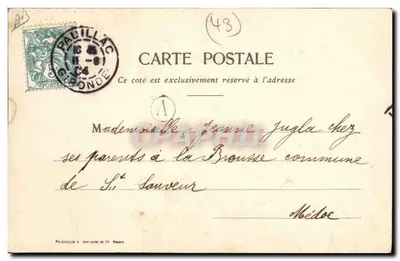 (43)
PAUILLAC
GIRONDE
04
CARTE POSTALE
Ce coté est exclusivement réservé à l'adresse
A
Mademoiselle Jeanne Jugla chez
ses parents à la Brousse commune
de St Sauveur
Médoc